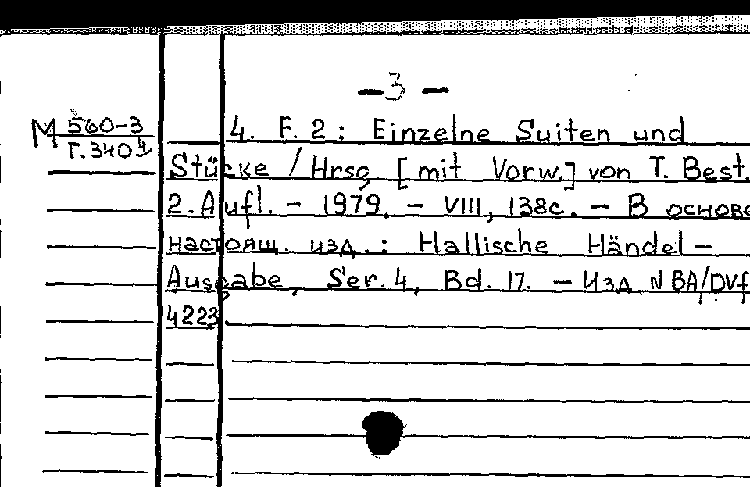 — 3 —
М 560-3 4. F. 2 : Einzelne Suiten und
Г.340 Stücke / Hrsg [mit Vorw.] von T. Best.
2. Aufl. – 1979. – VIII, 138с. – В основе
настоящ. изд. : Hallische Händel –
Ausgabe, Ser. 4, Bd. 17. – Изд N BA/DVf
4223